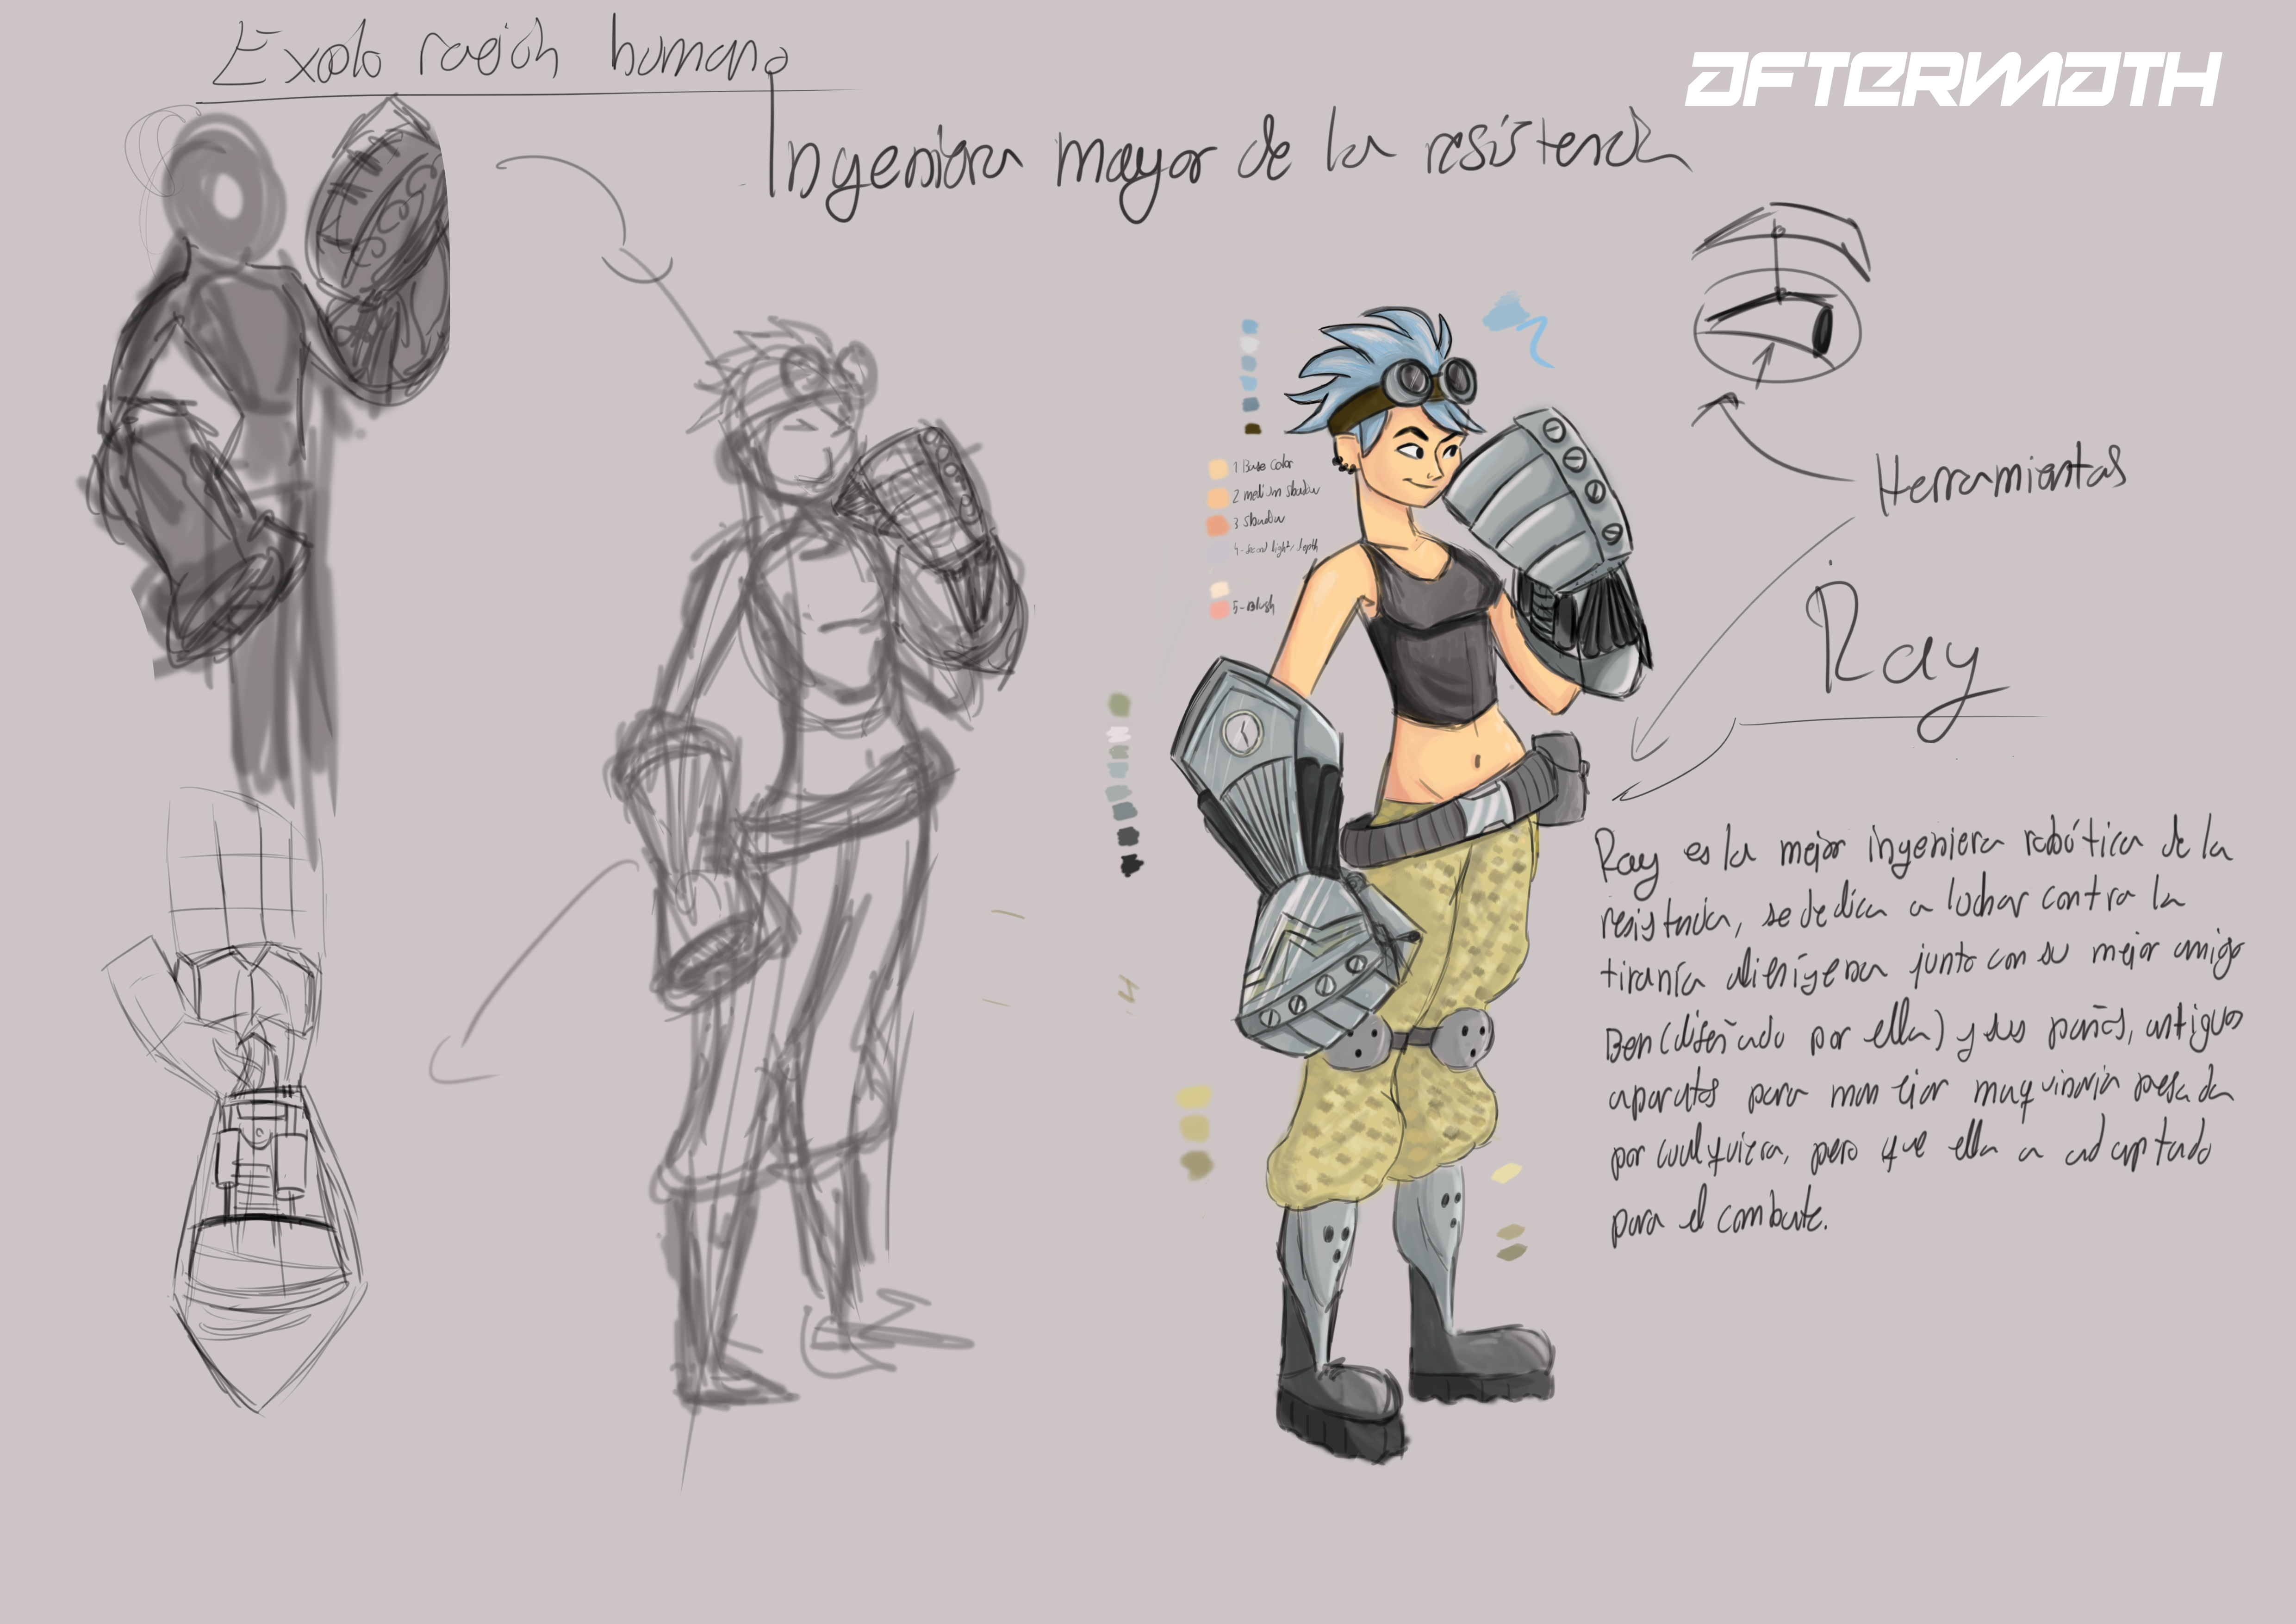 Exploración humana
AFTERMATH
Ingeniera mayor de la resistencia
Herramientas
1 Base color
2 medium shadow
3 shadow
4-second light/depth
5-Blush
Ray
Ray es la mejor ingeniera robótica de la
resistencia, se dedica a luchar contra la
tiranía alienígena junto con su mejor amigo
Ben (diseñado por ella) y sus puños, antiguos
aparatos para manejar maquinaria pesada
por cualquiera, pero que ella a adaptado
para el combate.